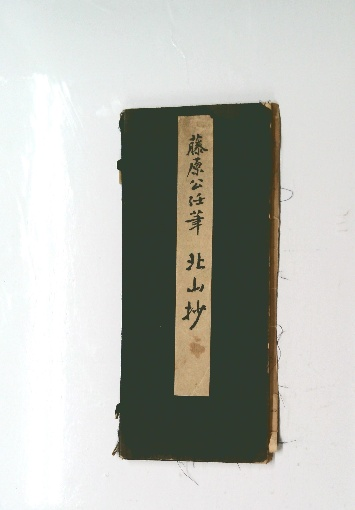 藤原公任筆 北山抄